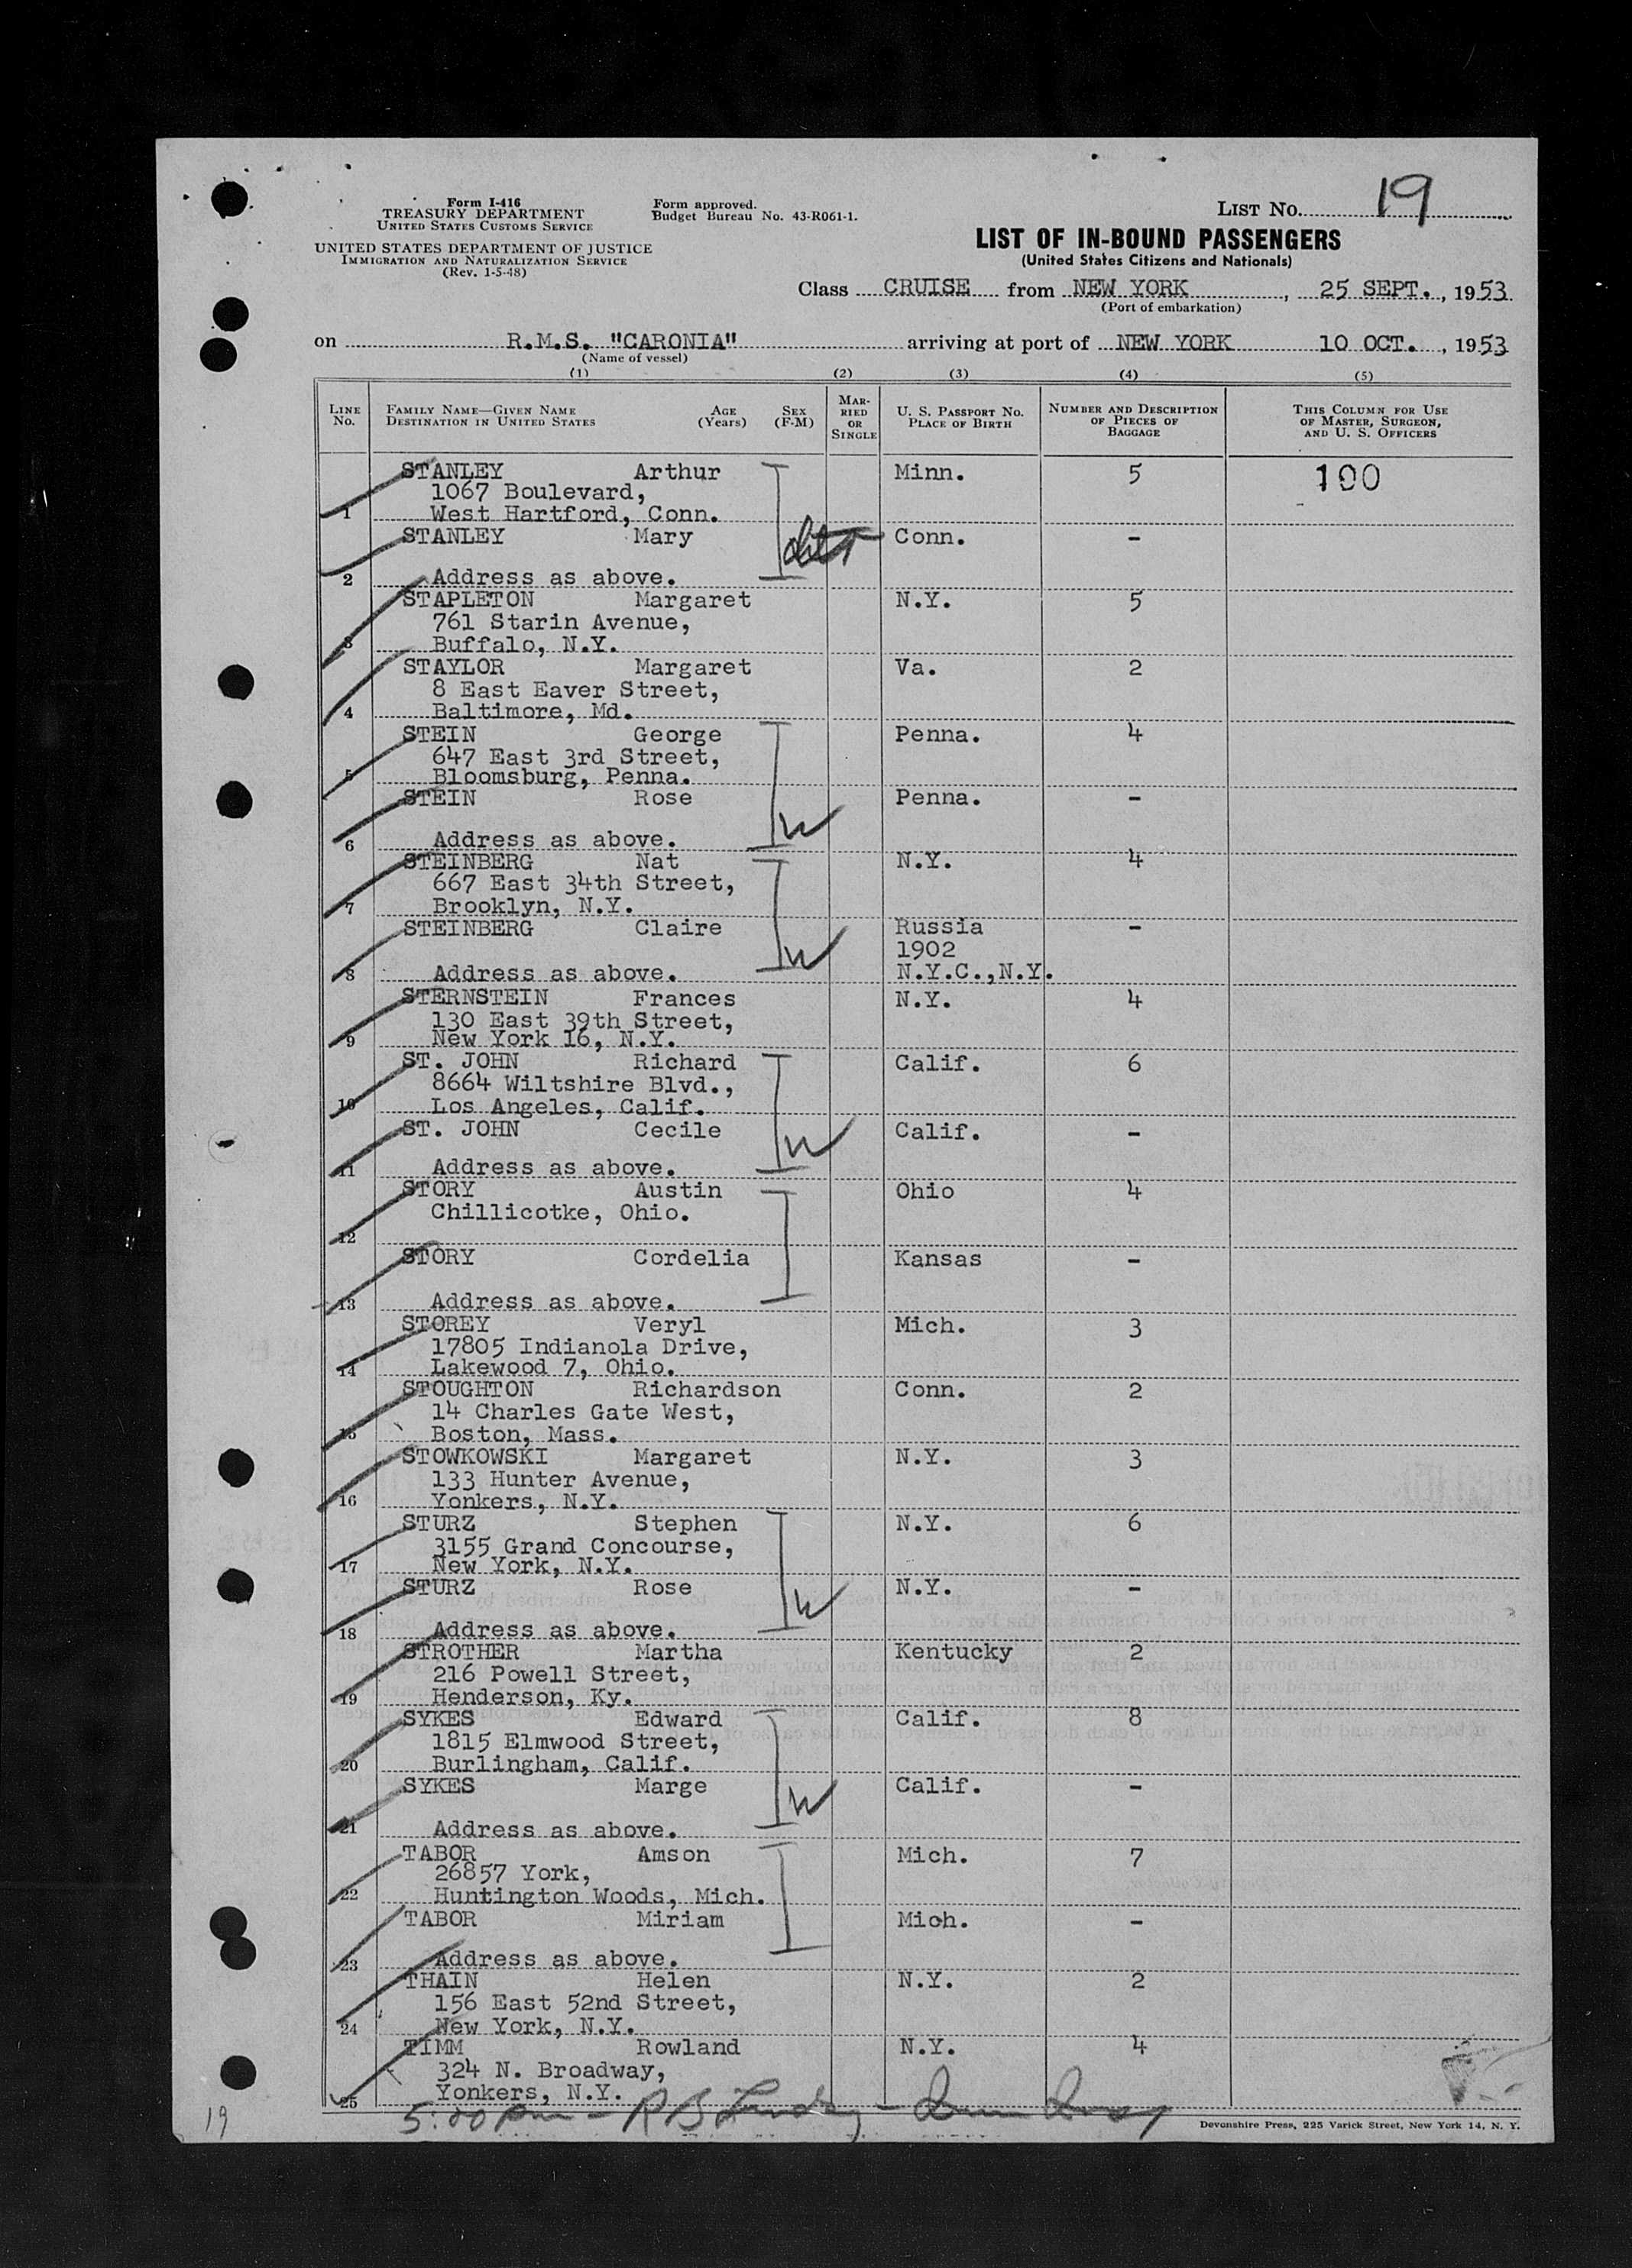 Form I-416
TREASURY DEPARTMENT
UNITED STATES CUSTOMS SERVICE
UNITED STATES DEPARTMENT OF JUSTICE
IMMIGRATION AND NATURALIZATION SERVICE
(Rev. 1-5-48)
Form approved.
Budget Bureau No. 43-R061-1.
LIST No. 19
LIST OF IN-BOUND PASSENGERS
(United States Citizens and Nationals)
Class CRUISE from NEW YORK, 25 SEPT., 1953
(Port of embarkation)
on R.M.S. "CARONIA" arriving at port of NEW YORK 10 OCT., 1953
(Name of vessel)
(1) (2) (3) (4) (5)
LINE No. FAMILY NAME—GIVEN NAME DESTINATION IN UNITED STATES AGE (Years) SEX (F-M) MARRIED OR SINGLE U. S. PASSPORT No. PLACE OF BIRTH NUMBER AND DESCRIPTION OF PIECES OF BAGGAGE THIS COLUMN FOR USE OF MASTER, SURGEON, AND U. S. OFFICERS
STANLEY Arthur Minn. 5 100
1067 Boulevard,
1 West Hartford, Conn.
STANLEY Mary Conn. -
2 Address as above.
STAPLETON Margaret N.Y. 5
761 Starin Avenue,
3 Buffalo, N.Y.
STAYLOR Margaret Va. 2
8 East Eaver Street,
4 Baltimore, Md.
STEIN George Penna. 4
647 East 3rd Street,
5 Bloomsburg, Penna.
STEIN Rose Penna. -
W
6 Address as above.
STEINBERG Nat N.Y. 4
667 East 34th Street,
7 Brooklyn, N.Y.
STEINBERG Claire Russia -
1902
W
8 Address as above. N.Y.C.,N.Y.
STERNSTEIN Frances N.Y. 4
130 East 39th Street,
9 New York 16, N.Y.
ST. JOHN Richard Calif. 6
8664 Wiltshire Blvd.,
10 Los Angeles, Calif.
ST. JOHN Cecile Calif. -
W
11 Address as above.
STORY Austin Ohio 4
Chillicotke, Ohio.
12
STORY Cordelia Kansas -
13 Address as above.
STOREY Veryl Mich. 3
17805 Indianola Drive,
14 Lakewood 7, Ohio.
STOUGHTON Richardson Conn. 2
14 Charles Gate West,
15 Boston, Mass.
STOWKOWSKI Margaret N.Y. 3
133 Hunter Avenue,
16 Yonkers, N.Y.
STURZ Stephen N.Y. 6
3155 Grand Concourse,
17 New York, N.Y.
STURZ Rose N.Y. -
W
18 Address as above.
STROTHER Martha Kentucky 2
216 Powell Street,
19 Henderson, Ky.
SYKES Edward Calif. 8
1815 Elmwood Street,
20 Burlingham, Calif.
SYKES Marge Calif. -
W
21 Address as above.
TABOR Amson Mich. 7
26857 York,
22 Huntington Woods, Mich.
TABOR Miriam Mich. -
23 Address as above.
THAIN Helen N.Y. 2
156 East 52nd Street,
24 New York, N.Y.
TIMM Rowland N.Y. 4
324 N. Broadway,
25 Yonkers, N.Y.
5:00 pm - R B
19
Devonshire Press, 225 Varick Street, New York 14, N. Y.